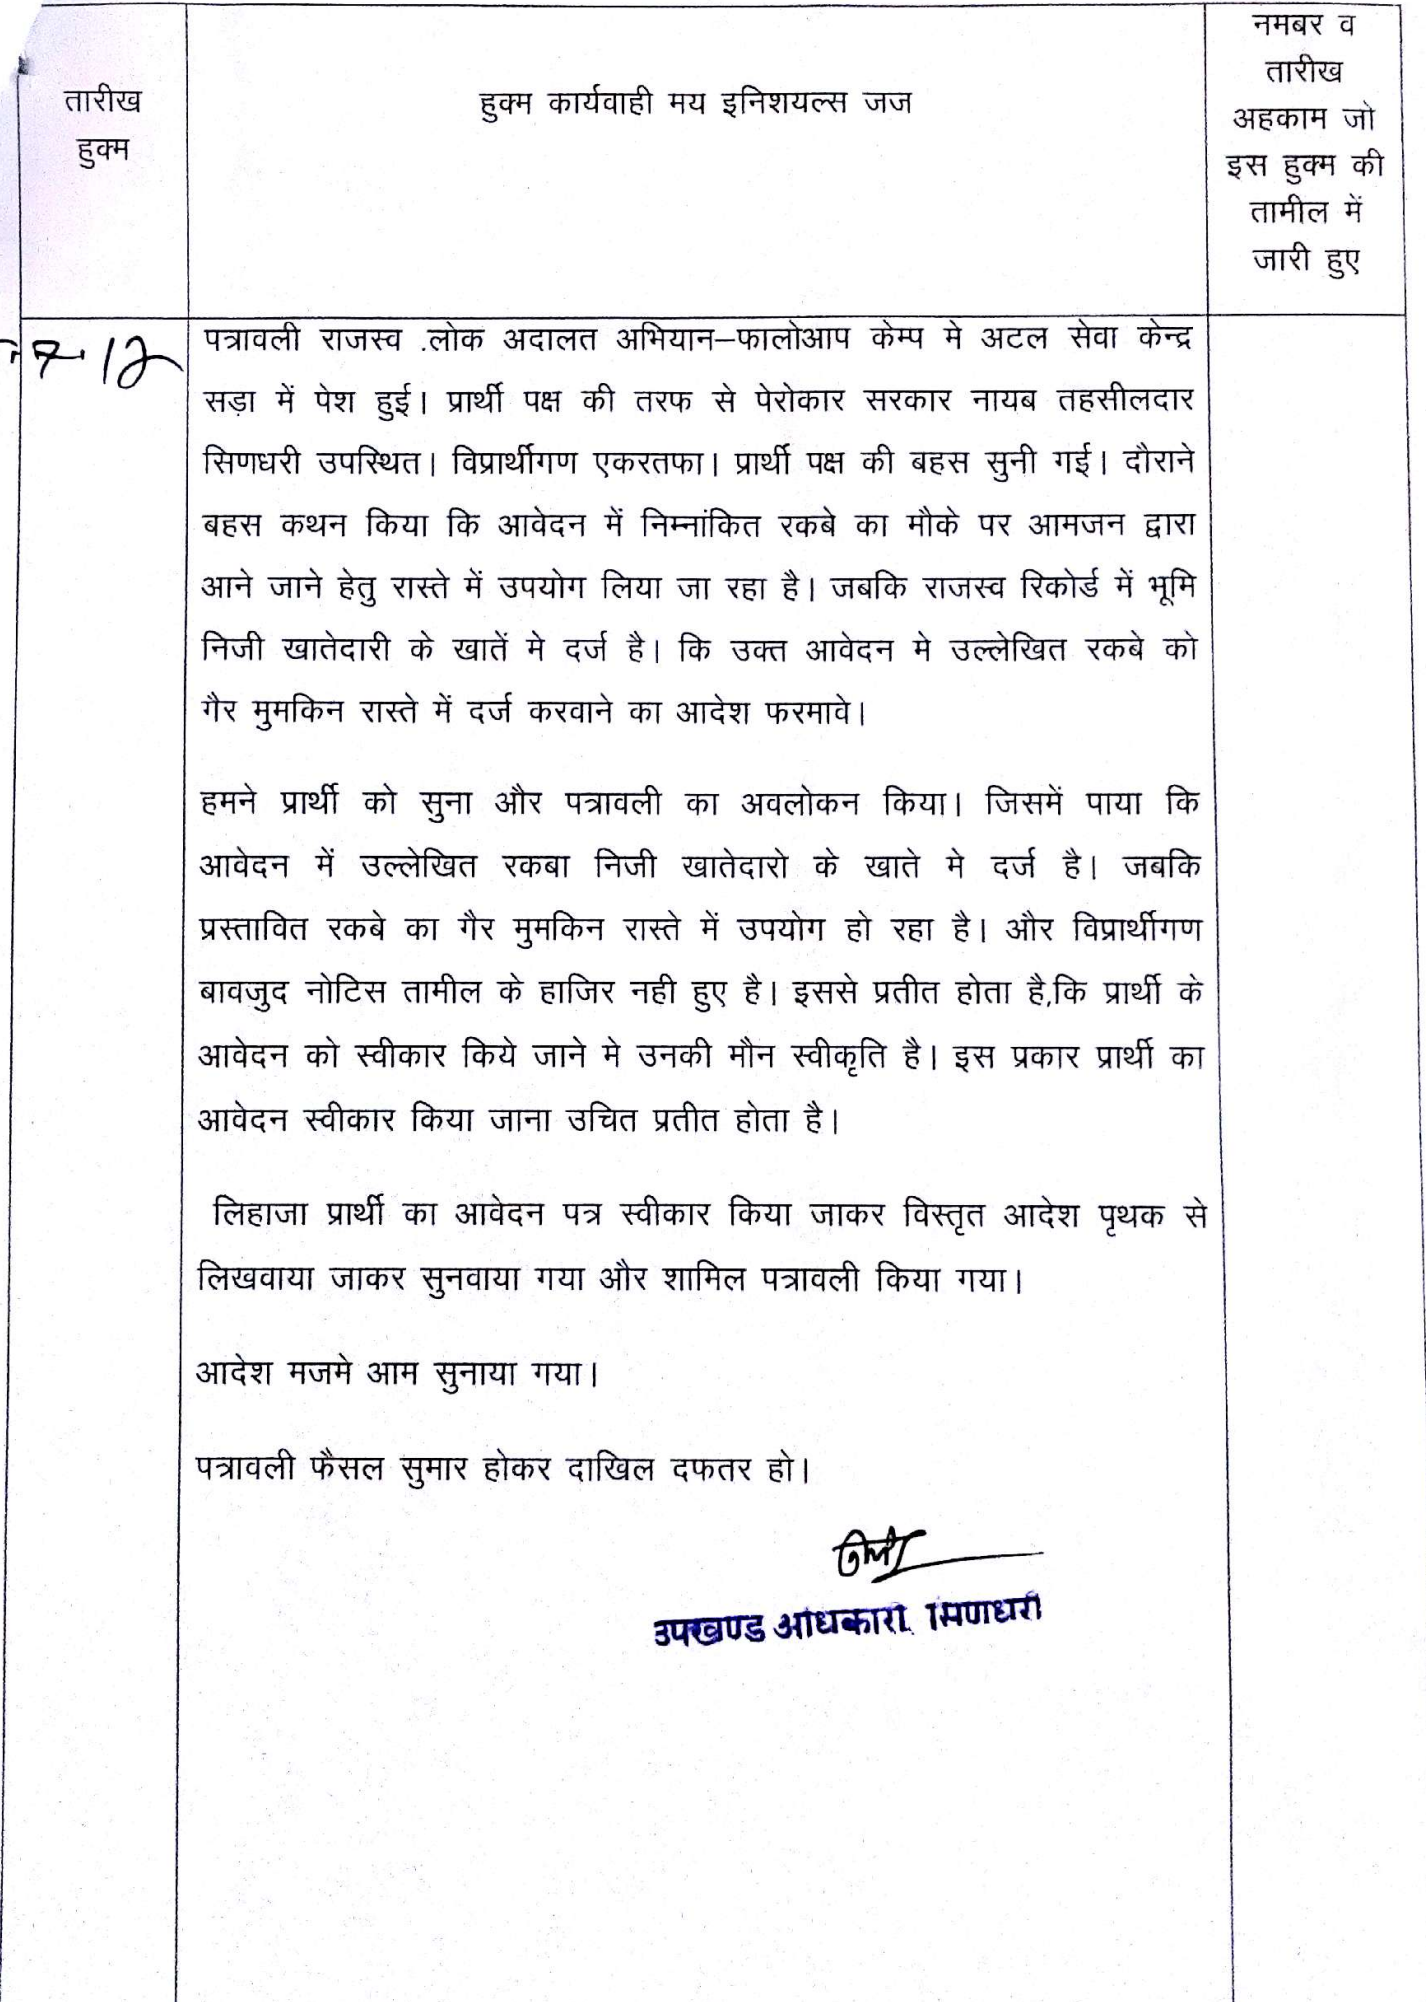 तारीख
हुक्म
हुक्म कार्यवाही मय इनिशयल्स जज
नमबर व
तारीख
अहकाम जो
इस हुक्म की
तामील में
जारी हुए
7.12
पत्रावली राजस्व .लोक अदालत अभियान–फालोआप केम्प मे अटल सेवा केन्द्र
सड़ा में पेश हुई। प्रार्थी पक्ष की तरफ से पेरोकार सरकार नायब तहसीलदार
सिणधरी उपस्थित। विप्रार्थीगण एकरतफा। प्रार्थी पक्ष की बहस सुनी गई। दौराने
बहस कथन किया कि आवेदन में निम्नांकित रकबे का मौके पर आमजन द्वारा
आने जाने हेतु रास्ते में उपयोग लिया जा रहा है। जबकि राजस्व रिकोर्ड में भूमि
निजी खातेदारी के खातें मे दर्ज है। कि उक्त आवेदन मे उल्लेखित रकबे को
गैर मुमकिन रास्ते में दर्ज करवाने का आदेश फरमावे।
हमने प्रार्थी को सुना और पत्रावली का अवलोकन किया। जिसमें पाया कि
आवेदन में उल्लेखित रकबा निजी खातेदारो के खाते मे दर्ज है। जबकि
प्रस्तावित रकबे का गैर मुमकिन रास्ते में उपयोग हो रहा है। और विप्रार्थीगण
बावजुद नोटिस तामील के हाजिर नही हुए है। इससे प्रतीत होता है,कि प्रार्थी के
आवेदन को स्वीकार किये जाने मे उनकी मौन स्वीकृति है। इस प्रकार प्रार्थी का
आवेदन स्वीकार किया जाना उचित प्रतीत होता है।
लिहाजा प्रार्थी का आवेदन पत्र स्वीकार किया जाकर विस्तृत आदेश पृथक से
लिखवाया जाकर सुनवाया गया और शामिल पत्रावली किया गया।
आदेश मजमे आम सुनाया गया।
पत्रावली फैसल सुमार होकर दाखिल दफतर हो।
उपखण्ड अधिकारी सिणधरी